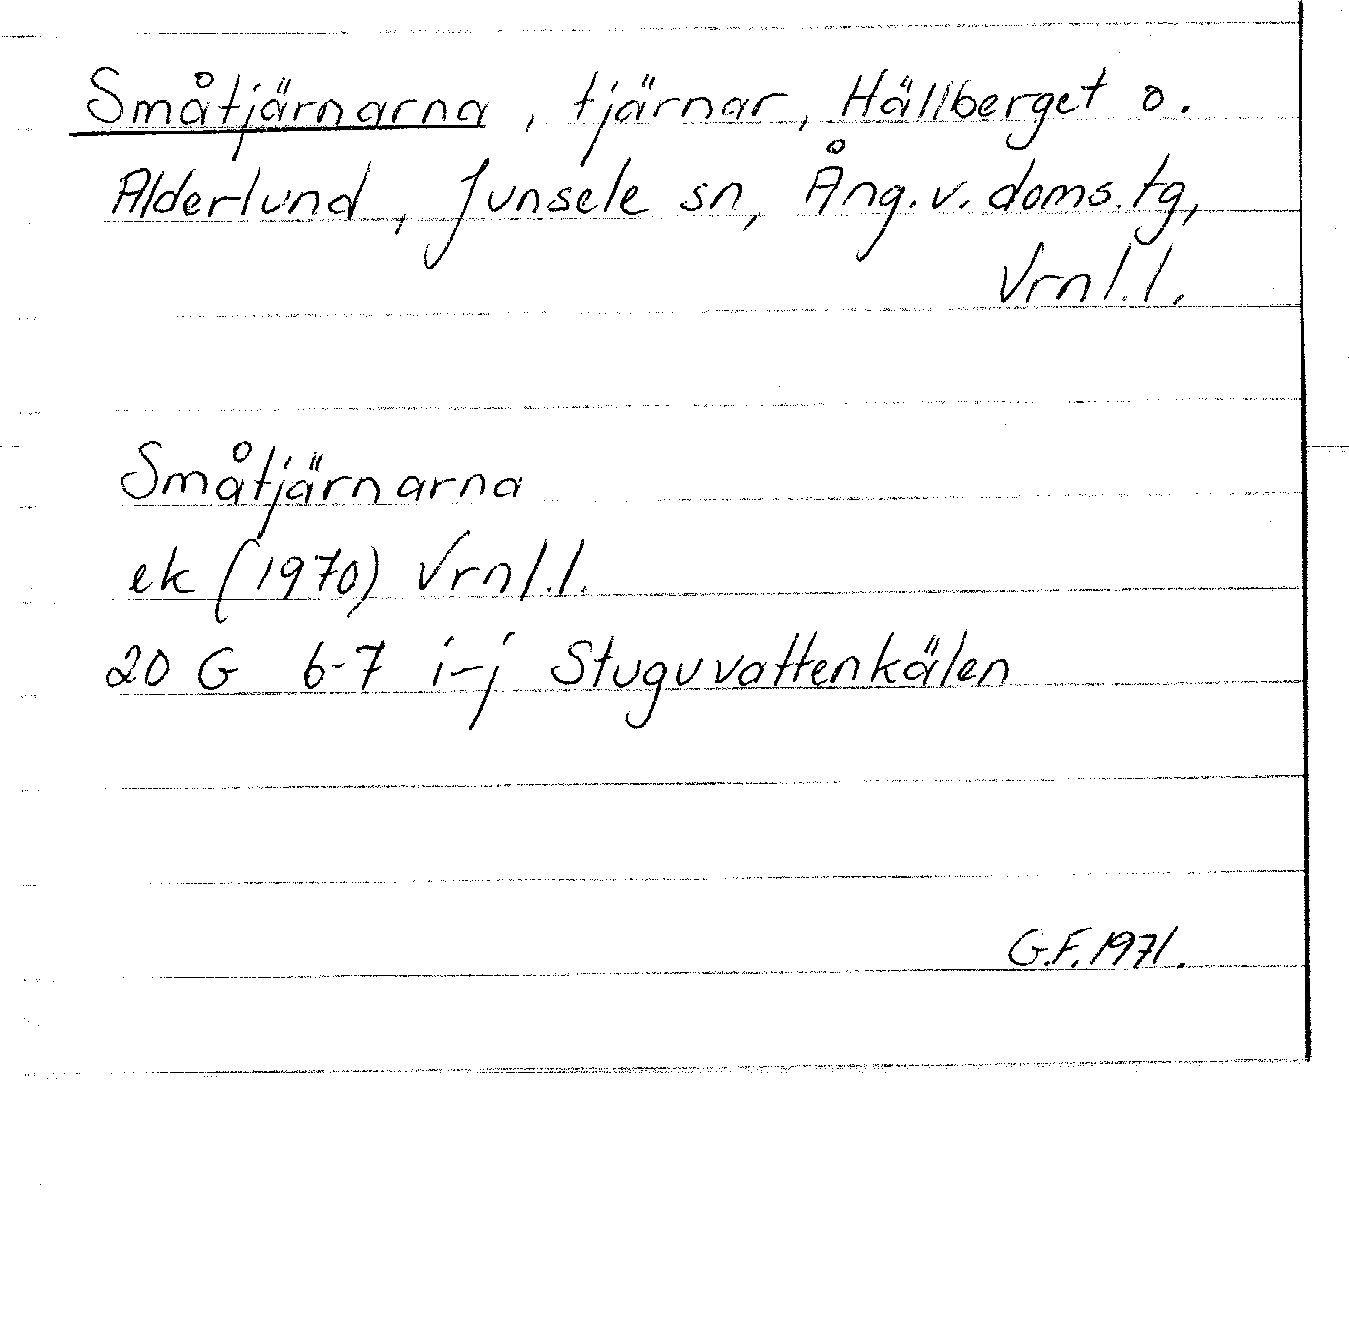 Småtjärnarna, tjärnar, Hällberget o.
Alderlund, Junsele sn, Ång. v. doms. tg,
Vrnl. l.
Småtjärnarna
ek (1970) Vrnl. l.
20 G 6-7 i-j Stuguvattenkälen
G.F. 1971.